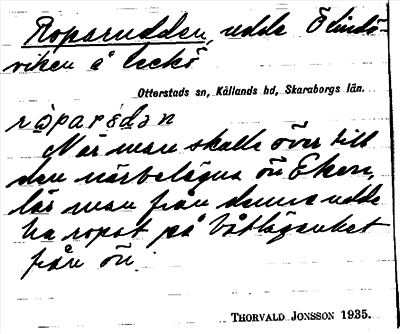 Roparudden, udde Ö Lindö-
viken å Leckö
Otterstads sn, Kållands hd, Skaraborgs län.
ròparedan
När man skulle över till
den närbelägna ön Eken,
lär man från denna udde
ha ropat på båtlägenhet
från ön.
THORVALD JONSSON 1935.